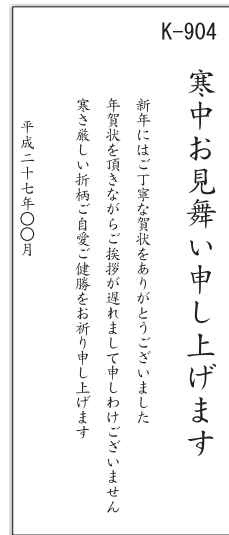 K-904
寒中お見舞い申し上げます
新年にはご丁寧な賀状をありがとうございました
年賀状を頂きながらご挨拶が遅れまして申しわけございません
寒さ厳しい折柄ご自愛ご健勝をお祈り申し上げます
平成二十七年〇〇月